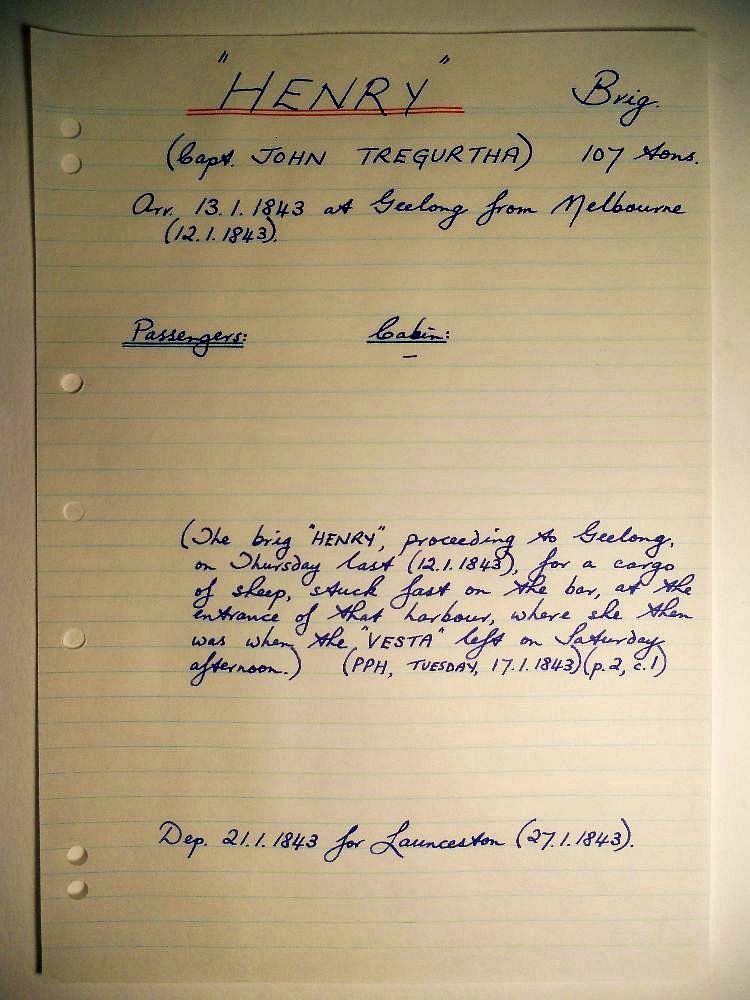 "HENRY" Brig.
(Capt. JOHN TREGURTHA) 107 tons.
Arr. 13.1.1843 at Geelong from Melbourne
(12.1.1843).
Passengers: Cabin:
–
(The brig "HENRY", proceeding to Geelong,
on Thursday last (12.1.1843), for a cargo
of sheep, stuck fast on the bar, at the
entrance of that harbour, where she then
was when the "VESTA" left on Saturday
afternoon.) (PPH, TUESDAY, 17.1.1843)(p.2, c.1)
Dep. 21.1.1843 for Launceston (27.1.1843).